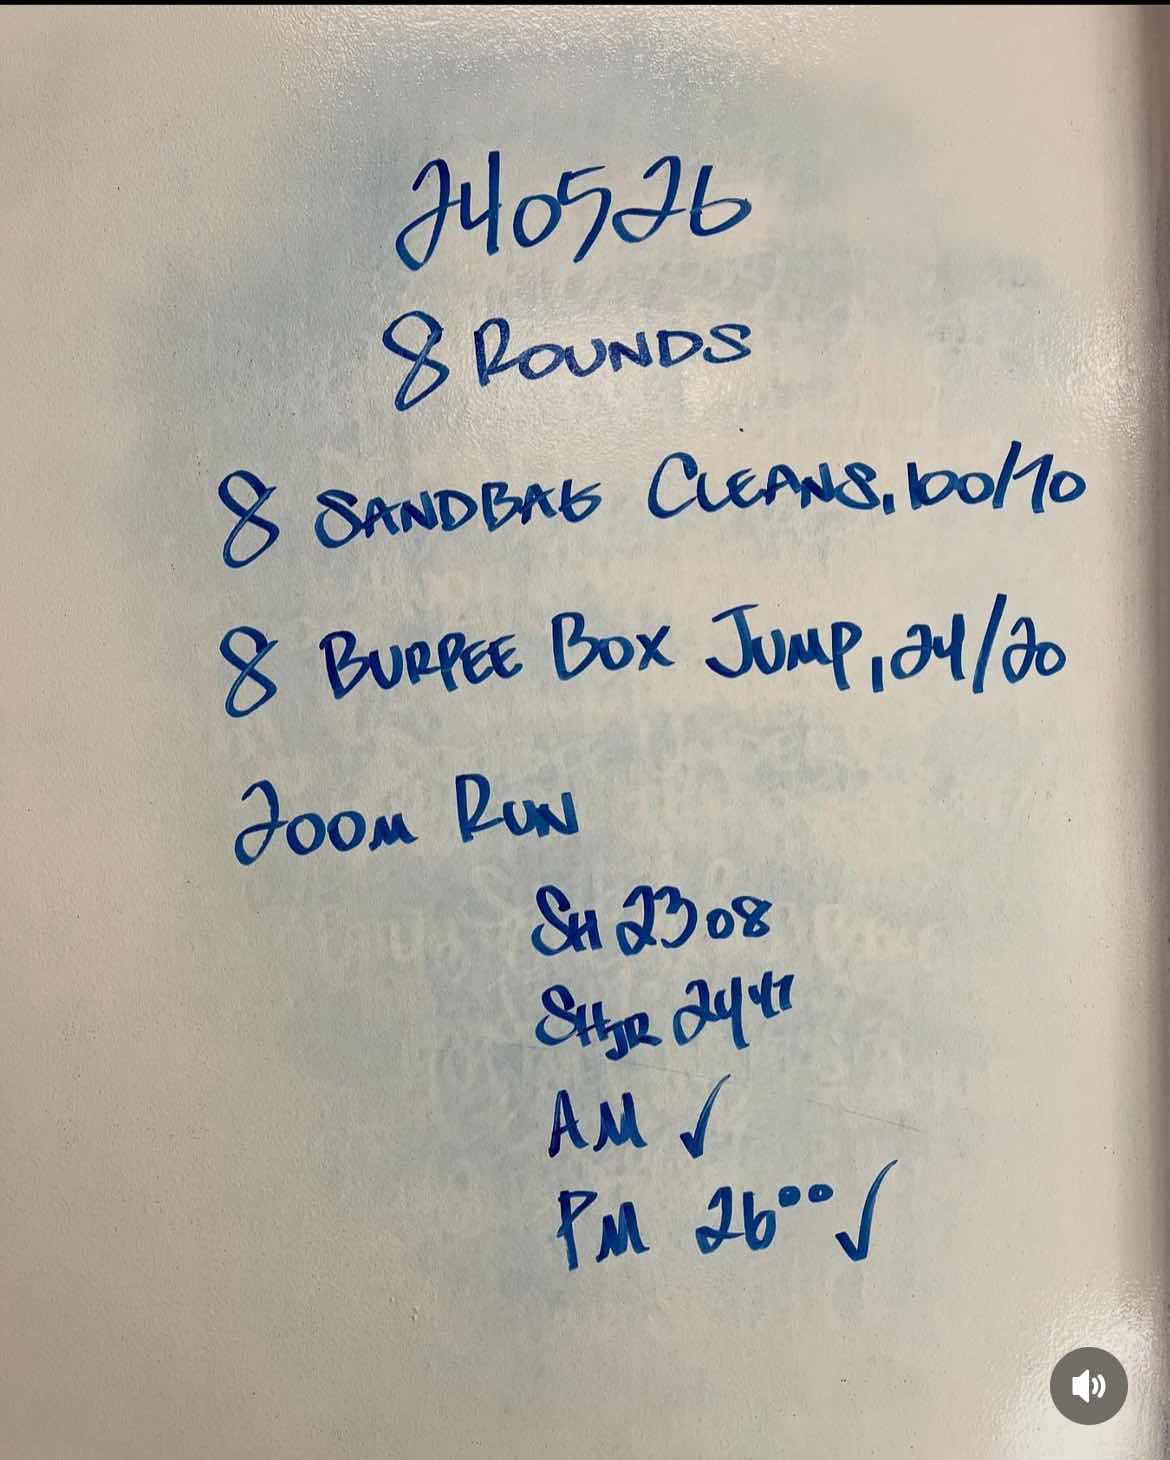 240526
8 ROUNDS
8 SANDBAG CLEANS, 100/70
8 BURPEE BOX JUMP, 24/20
200M RUN
SH 2308
SHJR 2447
AM ✓
PM 2600 ✓